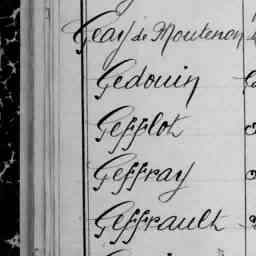 Geay de Moutenon
Gedouin
Gefflot
Geffray
Geffrault